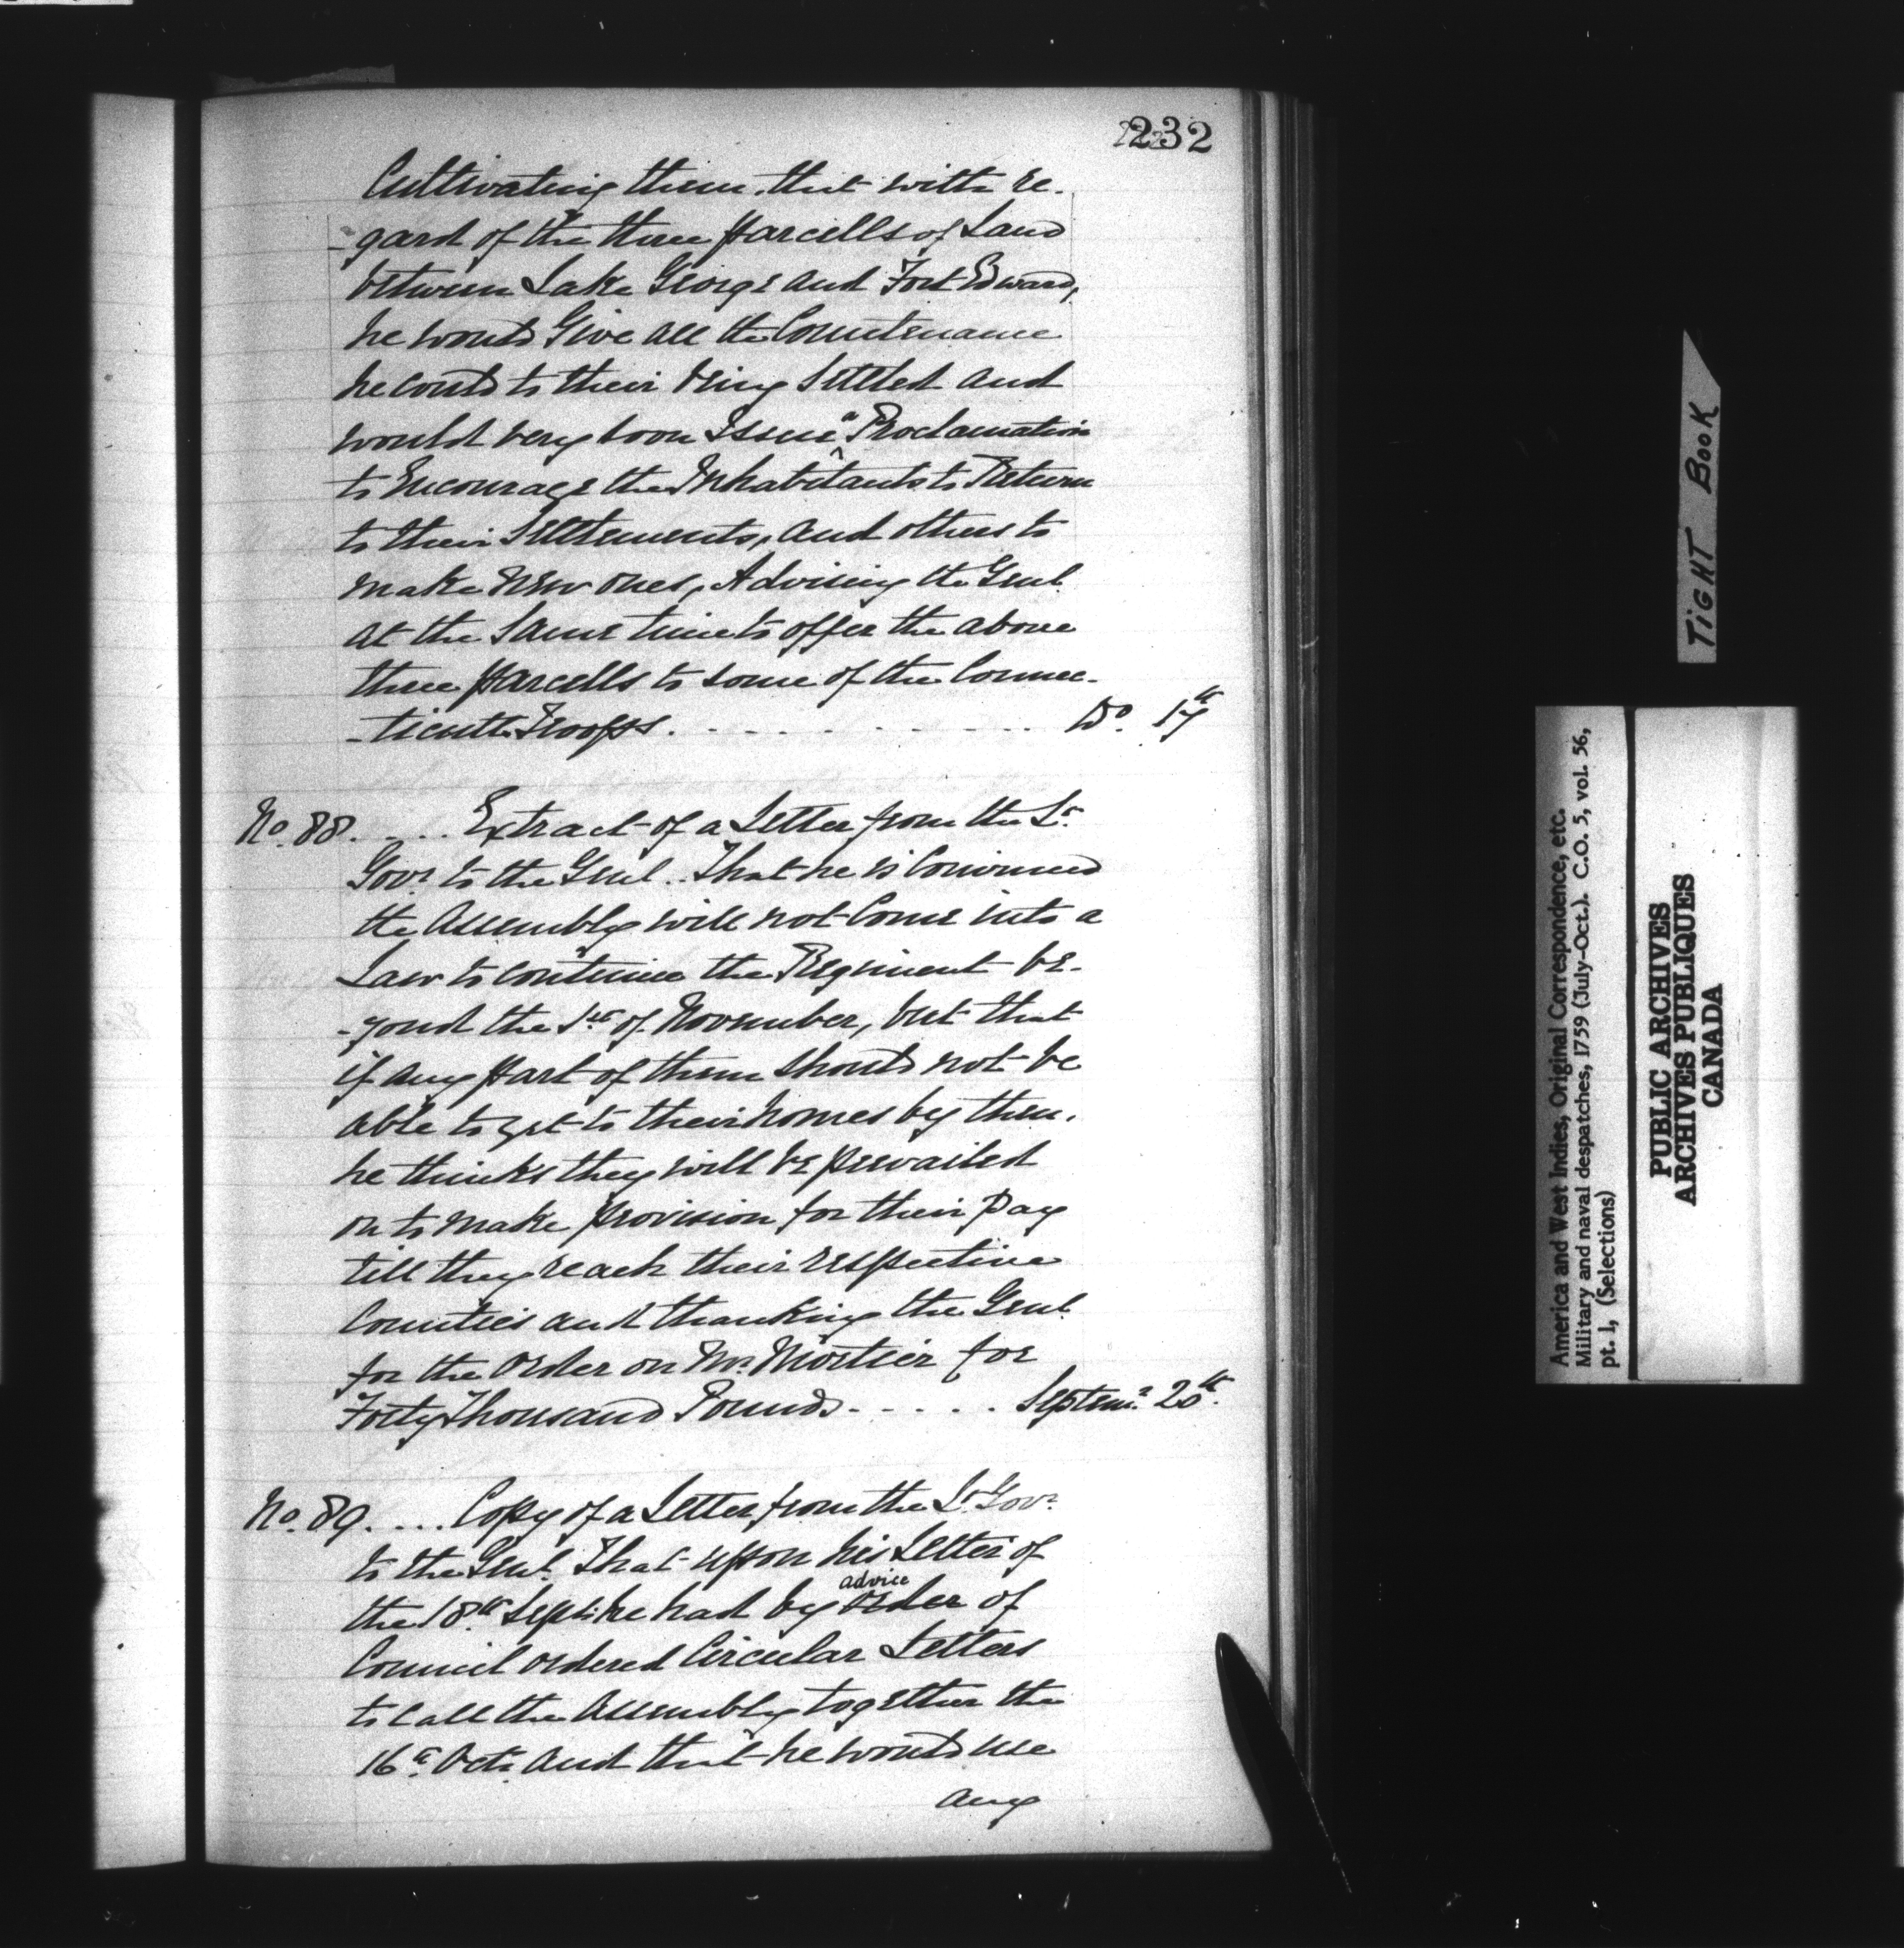 232
Cultivating them. that with re-
-gard of the three parcells of Land
between Lake George and Fort Edward,
he would Give all the Countenance
he could to their being Settled and
would very soon Issue a Proclamation
to Encourage the Inhabitants to Return
to their Settlements, and others to
make new ones, Advising the Genl.
at the Same time to offer the above
three parcells to some of the Connec-
-ticutt Troops. . . . . . . . . Do. 17th
No. 88. . . . . Extract of a Letter from the Lt.
Govr. to the Genl. That he is Convinced
the Assembly will not Come into a
Law to continue the Regiment be-
-yond the 1st of November, but that
if any part of them should not be
able to get to their homes by then,
he thinks they will be prevailed
on to make provision for their Pay
till they reach their respective
Counties and thanking the Genl.
for the Order on Mr. Mortier for
Forty Thousand Pounds. . . . . . Septemr. 20th.
No. 89. . . . . Copy of a Letter from the Lt. Govr.
to the Genl. That upon his Letter of
advice
the 18th. Sept. he had by Order of
Council ordered Circular Letters
to Call the Assembly together the
16th. Octr. and that he would use
any
TIGHT BOOK
America and West Indies, Original Correspondence, etc.
Military and naval despatches, 1759 (July-Oct.). C.O. 5, vol. 56,
pt. 1, (Selections)
PUBLIC ARCHIVES
ARCHIVES PUBLIQUES
CANADA